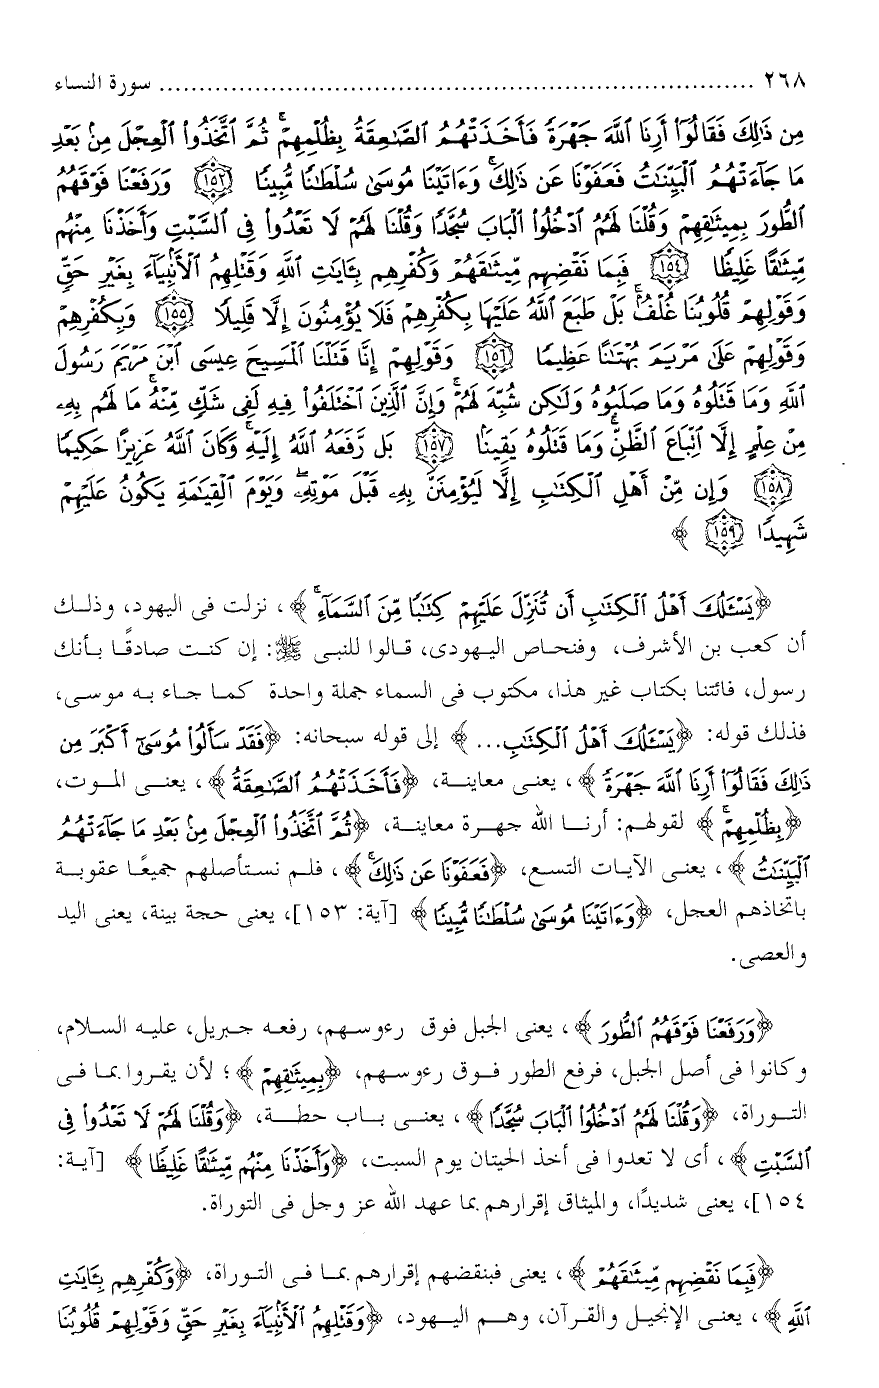 ٢٦٨ ........................................................................... سورة النساء
مِن ذَٰلِكَ فَقَالُوٓا۟ أَرِنَا ٱللَّهَ جَهْرَةً فَأَخَذَتْهُمُ ٱلصَّٰعِقَةُ بِظُلْمِهِمْ ۚ ثُمَّ ٱتَّخَذُوا۟ ٱلْعِجْلَ مِنۢ بَعْدِ
مَا جَآءَتْهُمُ ٱلْبَيِّنَٰتُ فَعَفَوْنَا عَن ذَٰلِكَ ۚ وَءَاتَيْنَا مُوسَىٰ سُلْطَٰنًا مُّبِينًا ﴿١٥٣﴾ وَرَفَعْنَا فَوْقَهُمُ
ٱلطُّورَ بِمِيثَٰقِهِمْ وَقُلْنَا لَهُمُ ٱدْخُلُوا۟ ٱلْبَابَ سُجَّدًا وَقُلْنَا لَهُمْ لَا تَعْدُوا۟ فِى ٱلسَّبْتِ وَأَخَذْنَا مِنْهُم
مِّيثَٰقًا غَلِيظًا ﴿١٥٤﴾ فَبِمَا نَقْضِهِم مِّيثَٰقَهُمْ وَكُفْرِهِم بِـَٔايَٰتِ ٱللَّهِ وَقَتْلِهِمُ ٱلْأَنۢبِيَآءَ بِغَيْرِ حَقٍّ
وَقَوْلِهِمْ قُلُوبُنَا غُلْفٌۢ ۚ بَلْ طَبَعَ ٱللَّهُ عَلَيْهَا بِكُفْرِهِمْ فَلَا يُؤْمِنُونَ إِلَّا قَلِيلًا ﴿١٥٥﴾ وَبِكُفْرِهِمْ
وَقَوْلِهِمْ عَلَىٰ مَرْيَمَ بُهْتَٰنًا عَظِيمًا ﴿١٥٦﴾ وَقَوْلِهِمْ إِنَّا قَتَلْنَا ٱلْمَسِيحَ عِيسَى ٱبْنَ مَرْيَمَ رَسُولَ
ٱللَّهِ وَمَا قَتَلُوهُ وَمَا صَلَبُوهُ وَلَٰكِن شُبِّهَ لَهُمْ ۚ وَإِنَّ ٱلَّذِينَ ٱخْتَلَفُوا۟ فِيهِ لَفِى شَكٍّ مِّنْهُ ۚ مَا لَهُم بِهِۦ
مِنْ عِلْمٍ إِلَّا ٱتِّبَاعَ ٱلظَّنِّ ۚ وَمَا قَتَلُوهُ يَقِينًۢا ﴿١٥٧﴾ بَل رَّفَعَهُ ٱللَّهُ إِلَيْهِ ۚ وَكَانَ ٱللَّهُ عَزِيزًا حَكِيمًا
﴿١٥٨﴾ وَإِن مِّنْ أَهْلِ ٱلْكِتَٰبِ إِلَّا لَيُؤْمِنَنَّ بِهِۦ قَبْلَ مَوْتِهِۦ ۖ وَيَوْمَ ٱلْقِيَٰمَةِ يَكُونُ عَلَيْهِمْ
شَهِيدًا ﴿١٥٩﴾ ﴾
﴿يَسْـَٔلُكَ أَهْلُ ٱلْكِتَٰبِ أَن تُنَزِّلَ عَلَيْهِمْ كِتَٰبًا مِّنَ ٱلسَّمَآءِ ۚ﴾، نزلت فى اليهود، وذلك
أن كعب بن الأشرف، وفنحاص اليهودى، قالوا للنبى ﷺ: إن كنت صادقًا بأنك
رسول، فائتنا بكتاب غير هذا، مكتوب فى السماء جملة واحدة كما جاء به موسى،
فذلك قوله: ﴿يَسْـَٔلُكَ أَهْلُ ٱلْكِتَٰبِ...﴾ إلى قوله سبحانه: ﴿فَقَدْ سَأَلُوا۟ مُوسَىٰٓ أَكْبَرَ مِن
ذَٰلِكَ فَقَالُوٓا۟ أَرِنَا ٱللَّهَ جَهْرَةً﴾، يعنى معاينة، ﴿فَأَخَذَتْهُمُ ٱلصَّٰعِقَةُ﴾، يعنى الموت،
﴿بِظُلْمِهِمْ ۚ﴾ لقولهم: أرنا الله جهرة معاينة، ﴿ثُمَّ ٱتَّخَذُوا۟ ٱلْعِجْلَ مِنۢ بَعْدِ مَا جَآءَتْهُمُ
ٱلْبَيِّنَٰتُ﴾، يعنى الآيات التسع، ﴿فَعَفَوْنَا عَن ذَٰلِكَ ۚ﴾، فلم نستأصلهم جميعًا عقوبة
باتخاذهم العجل، ﴿وَءَاتَيْنَا مُوسَىٰ سُلْطَٰنًا مُّبِينًا﴾ [آية: ١٥٣]، يعنى حجة بينة، يعنى اليد
والعصى.
﴿وَرَفَعْنَا فَوْقَهُمُ ٱلطُّورَ﴾، يعنى الجبل فوق رءوسهم، رفعه جبريل، عليه السلام،
وكانوا فى أصل الجبل، فرفع الطور فوق رءوسهم، ﴿بِمِيثَٰقِهِمْ﴾؛ لأن يقروا بما فى
التوراة، ﴿وَقُلْنَا لَهُمُ ٱدْخُلُوا۟ ٱلْبَابَ سُجَّدًا﴾، يعنى باب حطة، ﴿وَقُلْنَا لَهُمْ لَا تَعْدُوا۟ فِى
ٱلسَّبْتِ﴾، أى لا تعدوا فى أخذ الحيتان يوم السبت، ﴿وَأَخَذْنَا مِنْهُم مِّيثَٰقًا غَلِيظًا﴾ [آية:
١٥٤]، يعنى شديدًا، والميثاق إقرارهم بما عهد الله عز وجل فى التوراة.
﴿فَبِمَا نَقْضِهِم مِّيثَٰقَهُمْ﴾، يعنى فبنقضهم إقرارهم بما فى التوراة، ﴿وَكُفْرِهِم بِـَٔايَٰتِ
ٱللَّهِ﴾، يعنى الإنجيل والقرآن، وهم اليهود، ﴿وَقَتْلِهِمُ ٱلْأَنۢبِيَآءَ بِغَيْرِ حَقٍّ وَقَوْلِهِمْ قُلُوبُنَا